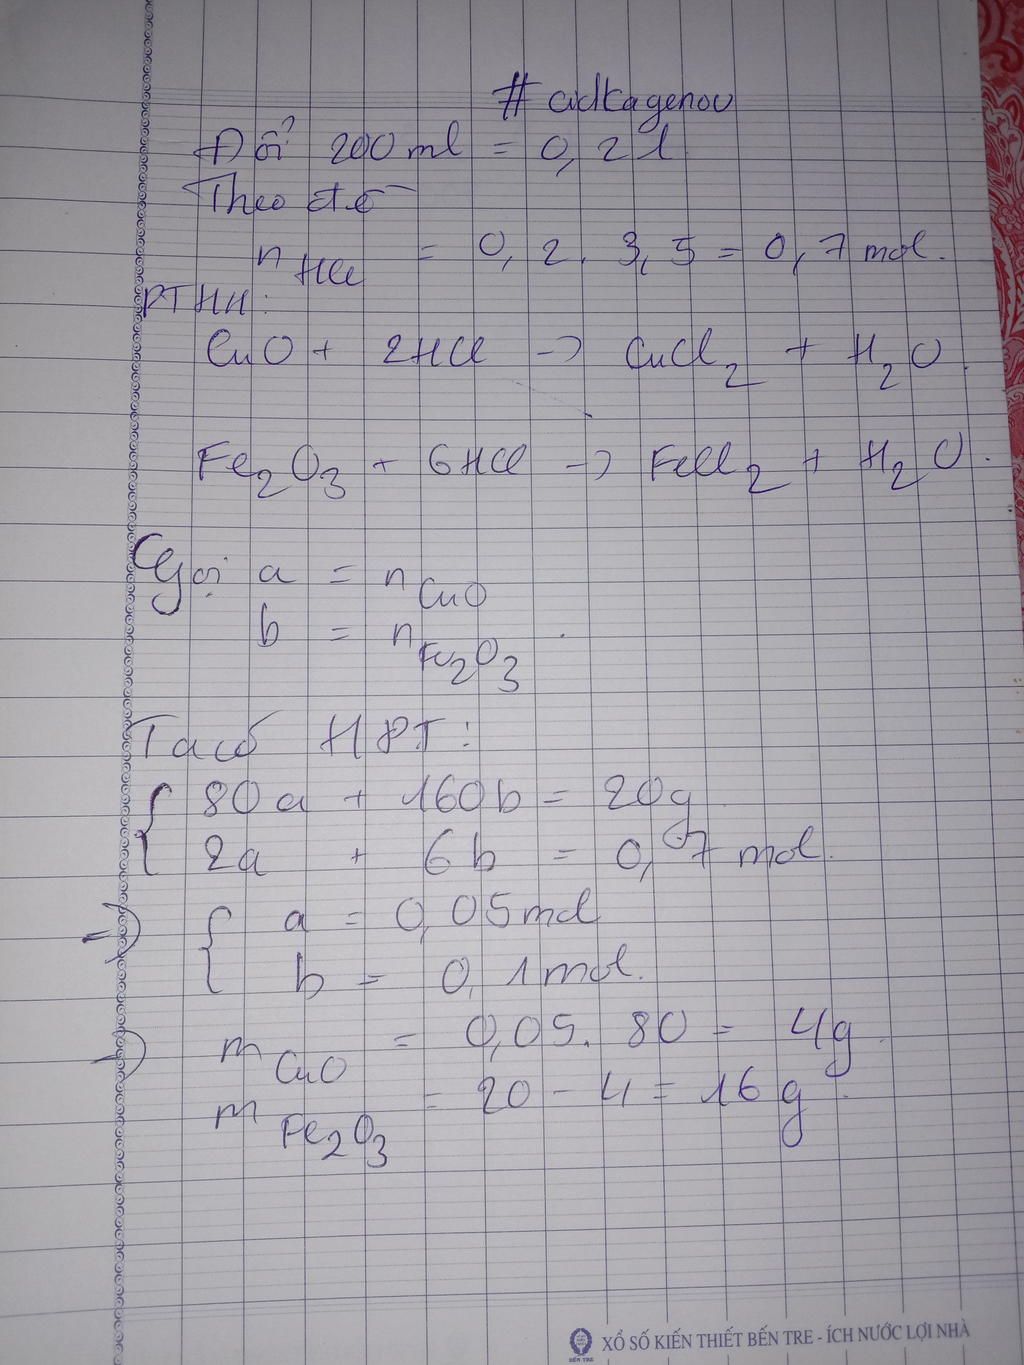 Đổi 200 ml = 0,2 l
Theo đề
nHCl = 0,2.3,5 = 0,7 mol.
PTHH:
CuO + 2HCl -> CuCl2 + H2O
Fe2O3 + 6HCl -> FeCl2 + H2O.
Gọi a = nCuO
b = nFe2O3
Ta có HPT:
{ 80a + 160b = 20g
2a + 6b = 0,7 mol.
=> { a = 0,05 mol
b = 0,1 mol.
=> mCuO = 0,05.80 = 4g.
mFe2O3 = 20 - 4 = 16g.
XỔ SỐ KIẾN THIẾT BẾN TRE - ÍCH NƯỚC LỢI NHÀ